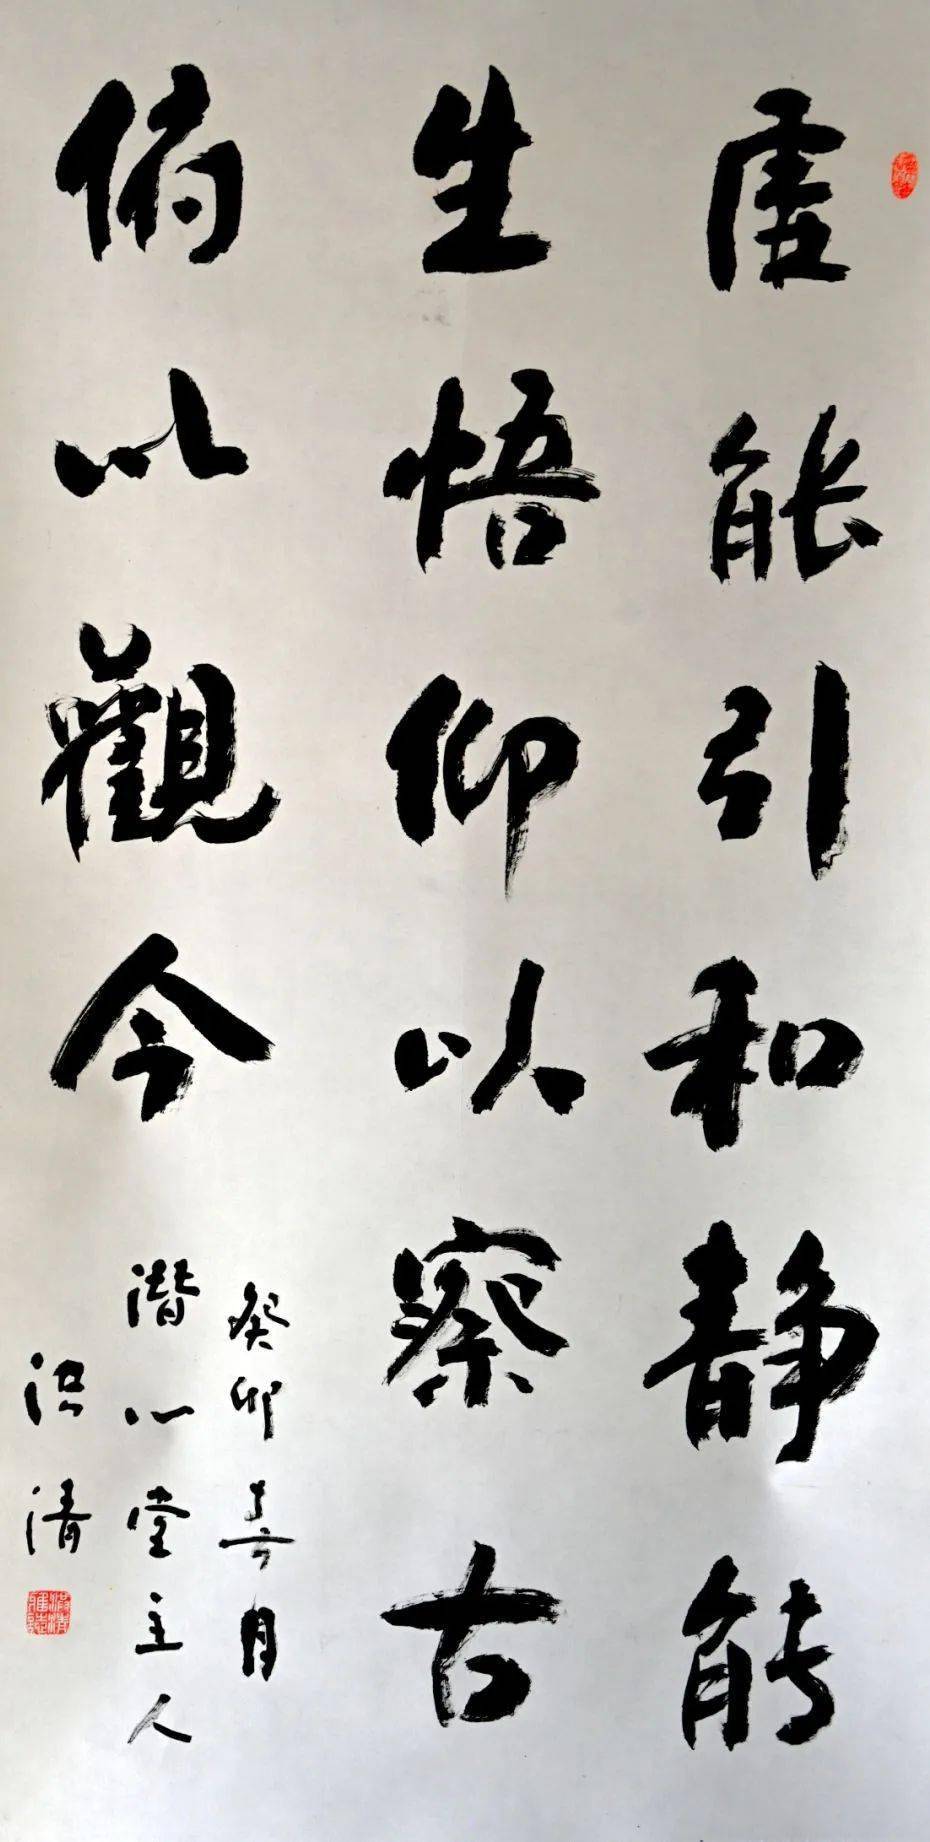 虚能引和静能
生悟仰以察古
俯以觀今
癸卯春月
潜心堂主人
洪清